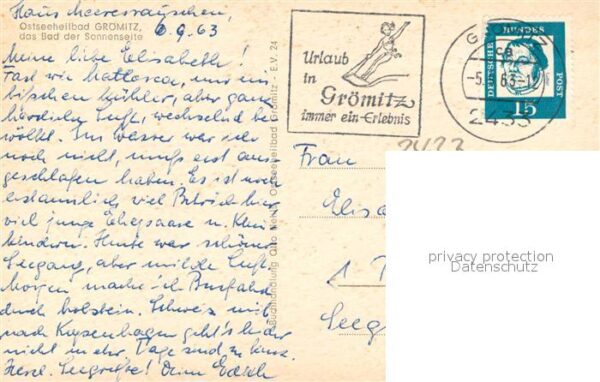 Haus Meeresrauschen,
Ostseeheilbad GRÖMITZ,
das Bad der Sonnenseite
6.9.63
Meine liebe Elisabeth!
Fast wie Mallorca, nur ein
bißchen kühler, aber ganz
herrliche Luft, wechselnd be-
wölkt. Ins Wasser war ich
noch nicht, muß erst aus-
geschlafen haben. Es ist noch
erstaunlich viel Betrieb hier
viel junge Ehepaare u. Klein
kindern. Heute war schöner
Seegang, aber milde Luft.
Morgen mache ich Busfahrt
durch holstein. Schweiz mit
nach Kopenhagen geht's leider
nicht mehr, Tage sind zu kurz.
Herzl. Seegrüße! Deine Edith
Buchhandlung Otto Ostseeheilbad Grömitz - E.V. 24
Urlaub
in
Grömitz
immer ein Erlebnis
-5.
63-1
2433
DEUTSCHE
BUNDES
POST
15
2433
Frau
Elisa
1
Seeg
privacy protection
Datenschutz